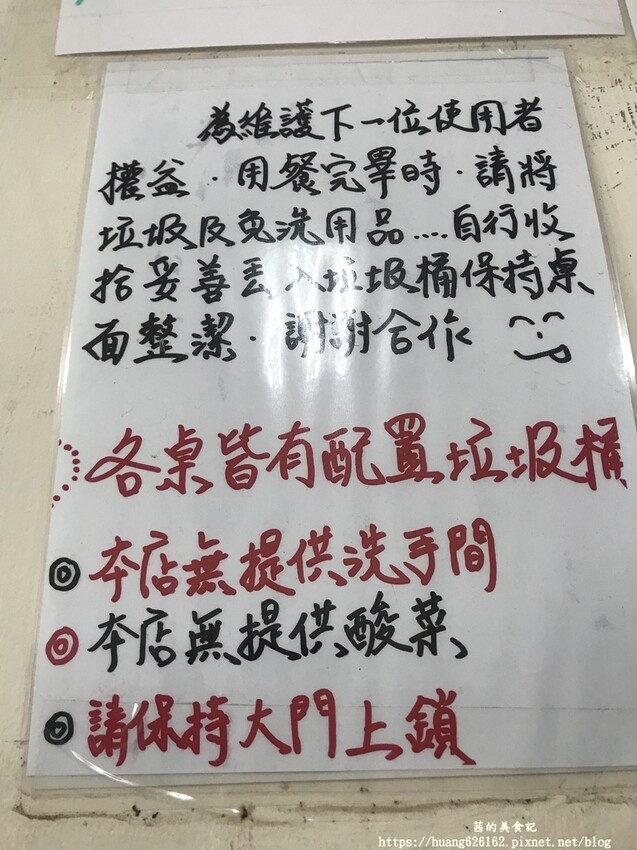 為維護下一位使用者
權益．用餐完畢時．請將
垃圾及免洗用品....自行收
拾妥善丟入垃圾桶保持桌
面整潔．謝謝合作
各桌皆有配置垃圾桶
◎本店無提供洗手間
◎本店無提供酸菜
◎請保持大門上鎖
茜的美食記
https://huang626162.pixnet.net/blog